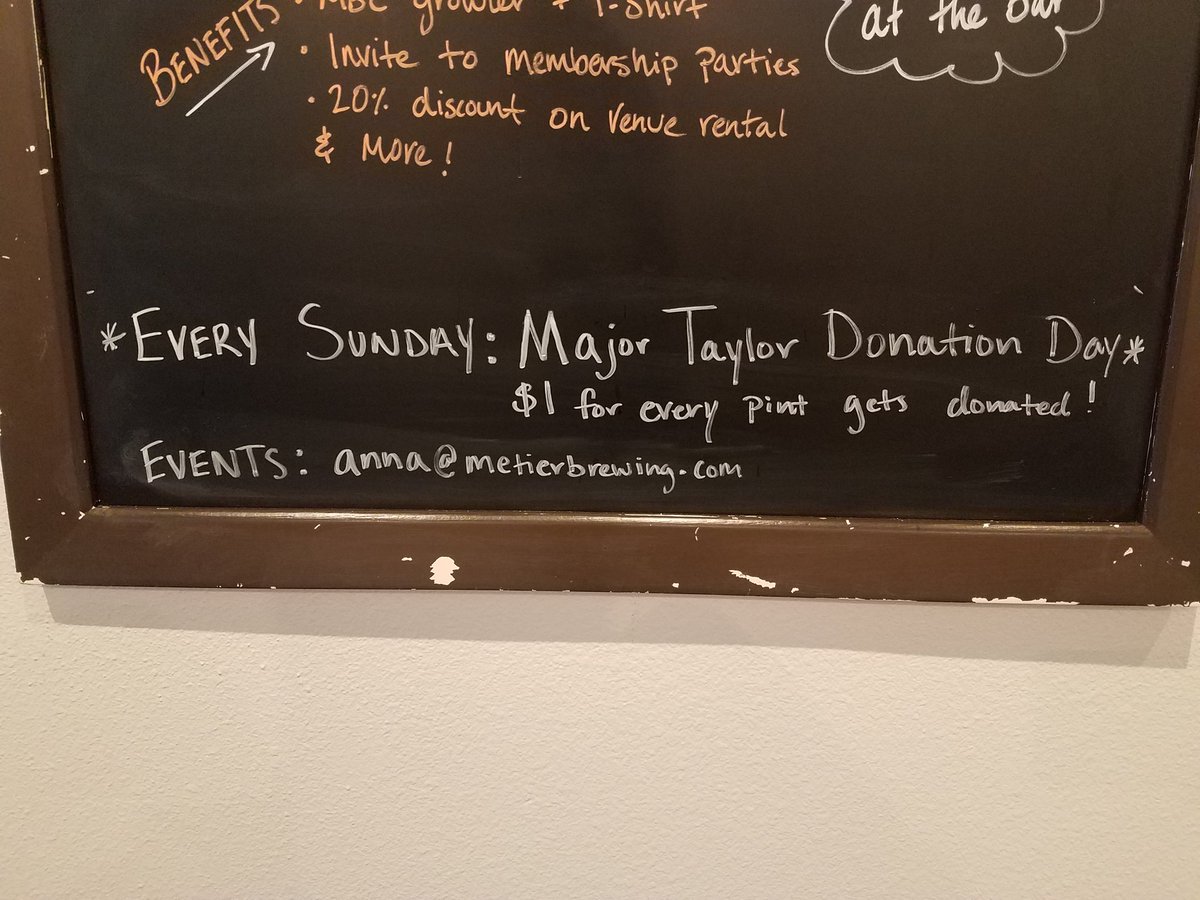 • MBC growler + T-Shirt
at the bar
BENEFITS
• Invite to membership parties
• 20% discount on venue rental
& More!
*EVERY SUNDAY: Major Taylor Donation Day*
$1 for every pint gets donated!
EVENTS: anna@metierbrewing.com